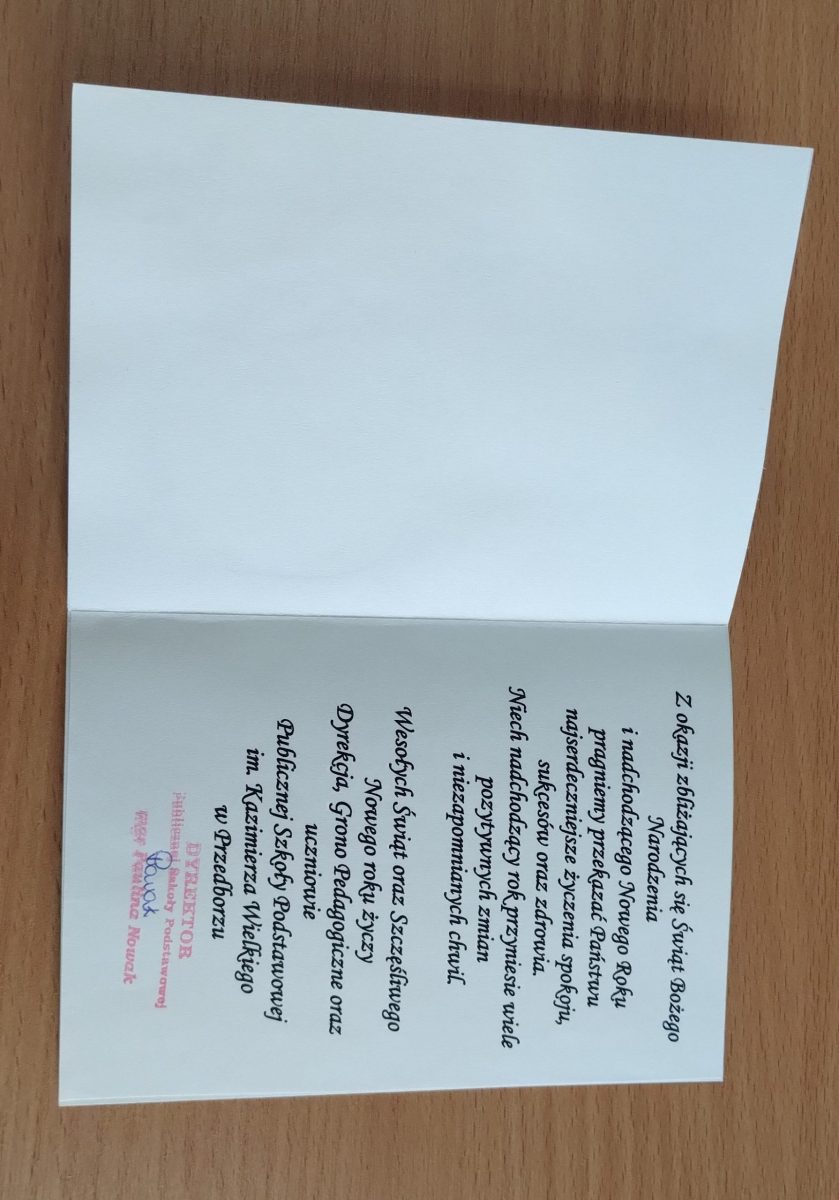 Z okazji zbliżających się Świąt Bożego
Narodzenia
i nadchodzącego Nowego Roku
pragniemy przekazać Państwu
najserdeczniejsze życzenia spokoju,
sukcesów oraz zdrowia.
Niech nadchodzący rok przyniesie wiele
pozytywnych zmian
i niezapomnianych chwil.
Wesołych Świąt oraz Szczęśliwego
Nowego roku życzy
Dyrekcja, Grono Pedagogiczne oraz
uczniowie
Publicznej Szkoły Podstawowej
im. Kazimierza Wielkiego
w Przedborzu
DYREKTOR
Publicznej Szkoły Podstawowej
mgr Paulina Nowak